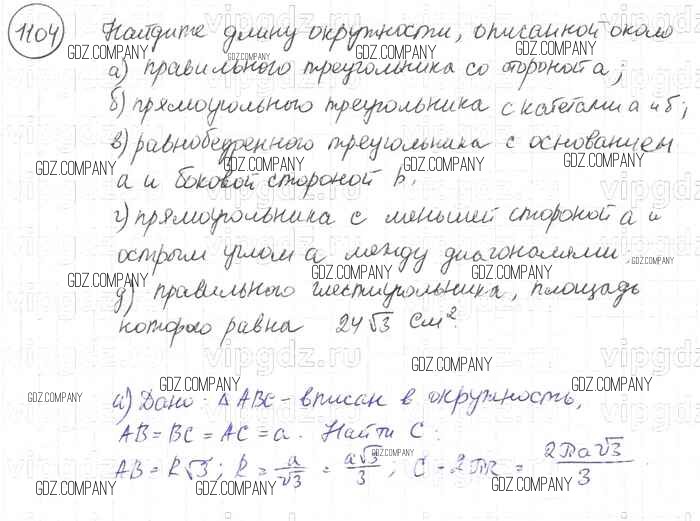 1104 Найдите длину окружности, описанной около
а) правильного треугольника со стороной а;
б) прямоугольного треугольника с катетами а и б;
в) равнобедренного треугольника с основанием
а и боковой стороной b.
г) прямоугольника с меньшей стороной а и
острым углом α между диагоналями.
д) правильного шестиугольника, площадь
которого равна 24√3 см².
а) Дано: △ ABC - вписан в окружность,
AB = BC = AC = a. Найти C.
AB = R√3; R = a/√3 = a√3/3; C - 2πr = 2πa√3/3